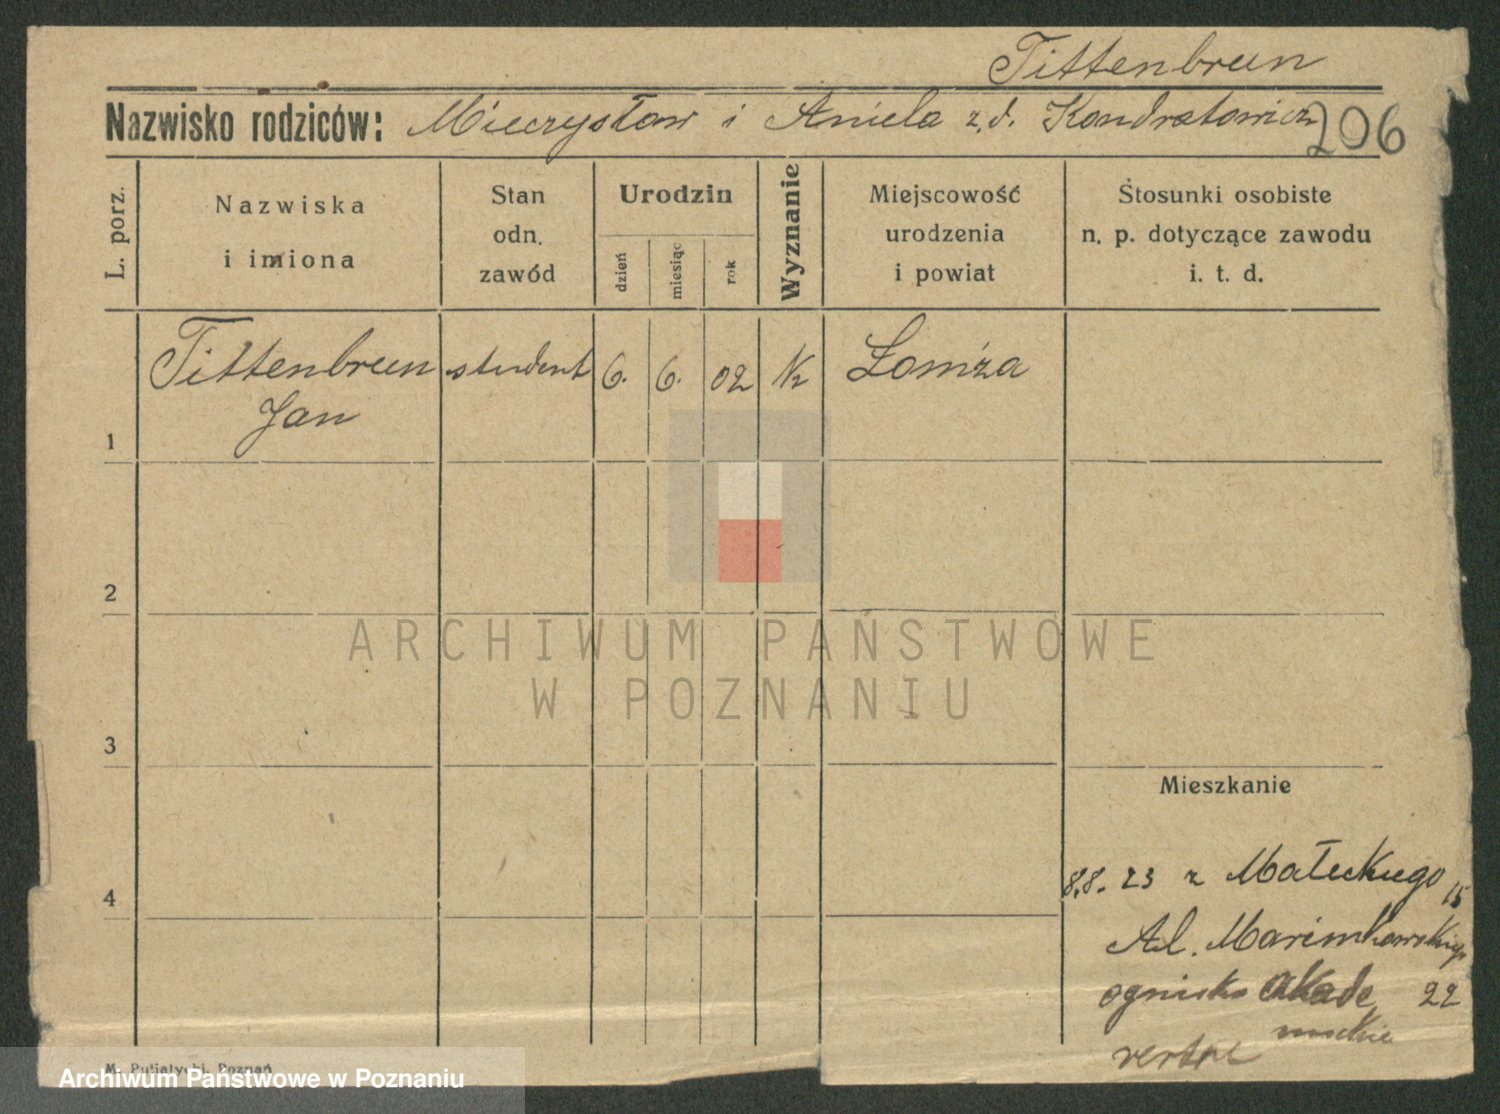 Tittenbrun
Nazwisko rodziców: Mieczysław i Aniela z.d. Kondratowicz 206
L. porz.
Nazwiska
i imiona
Stan
odn.
zawód
Urodzin
dzień
miesiąc
rok
Wyznanie
Miejscowość
urodzenia
i powiat
Stosunki osobiste
n. p. dotyczące zawodu
i. t. d.
1
Tittenbrun
Jan
student
6.
6.
02
Łomża
2
3
4
Mieszkanie
8.8. 23 z Małeckiego 15
Al. Marcinkowskiego
ognisko akade 22
mickie
ARCHIWUM PAŃSTWOWE
W POZNANIU
M. Putiatycki, Poznań
Archiwum Państwowe w Poznaniu